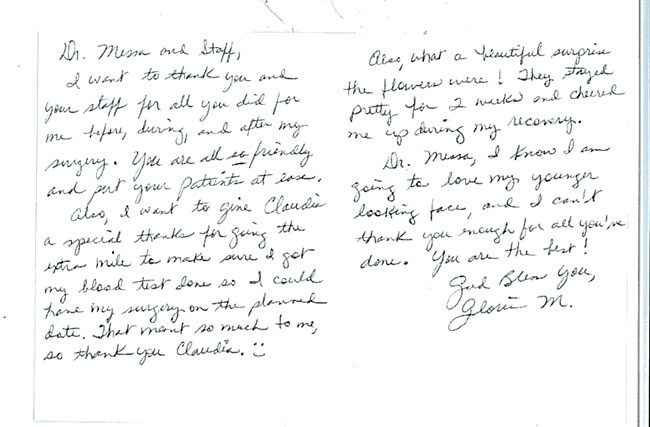 Dr. Messa and Staff,
I want to thank you and
your staff for all you did for
me before, during, and after my
surgery. You are all so friendly
and put your patients at ease.
Also, I want to give Claudia
a special thanks for going the
extra mile to make sure I got
my blood test done so I could
have my surgery on the planned
date. That meant so much to me,
so thank you Claudia. :)
Also, what a beautiful surprise
the flowers were! They stayed
pretty for 2 weeks and cheered
me up during my recovery.
Dr. Messa, I know I am
going to love my younger
looking face, and I can't
thank you enough for all you've
done. You are the best!
God Bless You,
Gloria M.